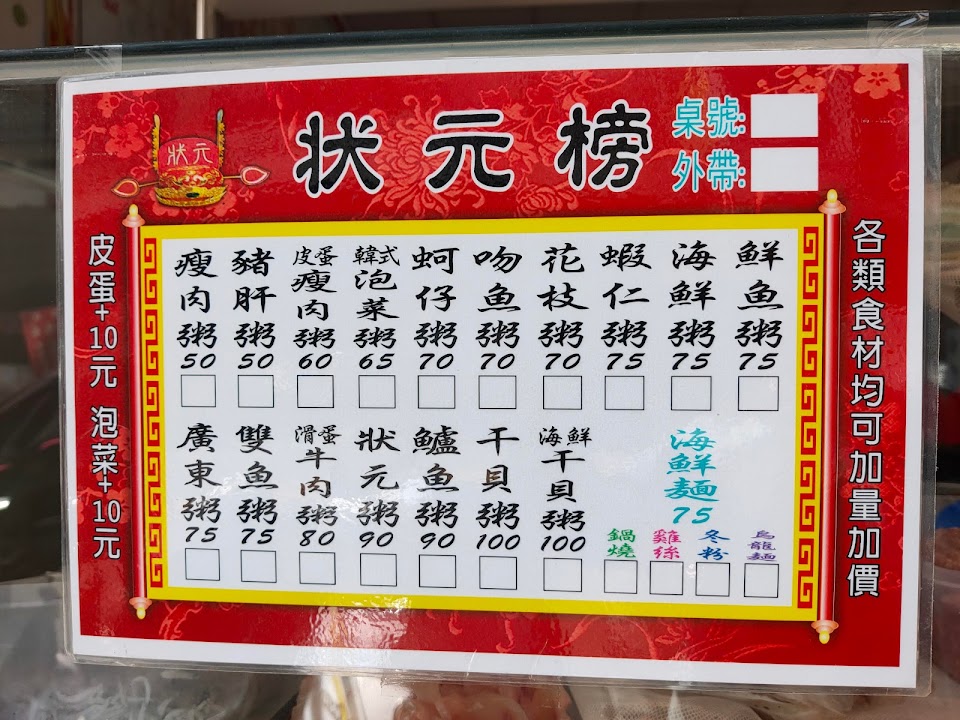 狀元
狀元榜
桌號:
外帶:
皮蛋+10元 泡菜+10元
瘦肉粥 50
豬肝粥 50
皮蛋瘦肉粥 60
韓式泡菜粥 65
蚵仔粥 70
吻魚粥 70
花枝粥 70
蝦仁粥 75
海鮮粥 75
鮮魚粥 75
廣東粥 75
雙魚粥 75
滑蛋牛肉粥 80
狀元粥 90
鱸魚粥 90
干貝粥 100
海鮮干貝粥 100
海鮮麵 75
鍋燒
雞絲
冬粉
烏龍麵
各類食材均可加量加價